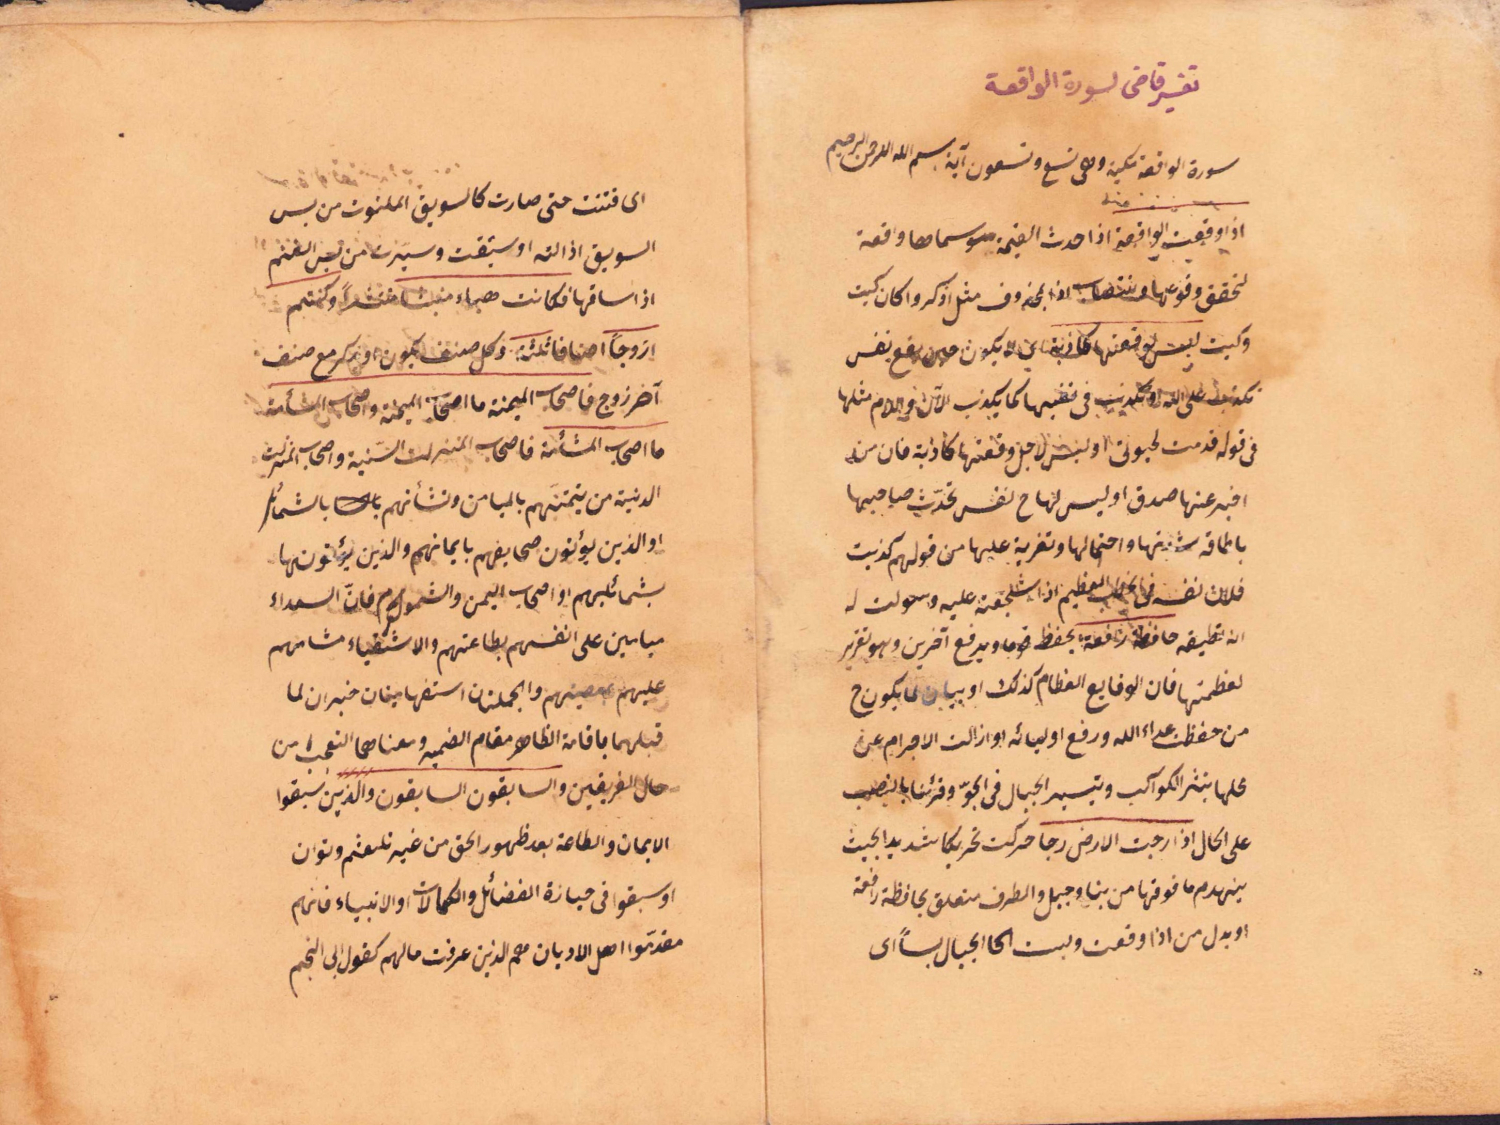 تفسير قاضى لسورة الواقعة
سورة الواقعة مكية وهى تسع وتسعون آية بسم الله الرحمن الرحيم
اذا وقعت الواقعة اذا حدثت القيمة سماها واقعة
لتحقق وقوعها وانتصاب اذا بمحذوف مثل اذكر او كان كيت
وكيت ليس لوقعتها كاذبة اى لا يكون حين تقع نفس
تكذب على الله او تكذب فى نفيها كما يكذب الآن واللام مثلها
فى قوله قدمت لحيوتى او ليس لاجل وقعتها كاذبة فان من
اخبر عنها صدق او ليس لها ح نفس تحدّث صاحبها
باطاقة شدتها واحتمالها وتغرية عليها من قولهم كذبت
فلانا نفسه فى الخطب العظيم اذا شجعته عليه وسولت له
انه يطيقه خافضة رافعة يخفض قوما ويرفع آخرين وهو تقرير
لعظمتها فان الوقايع العظام كذلك او بيان لما يكون ح
من خفض اعداء الله ورفع اوليائه او ازالت الاجرام عن
محلها بنثر الكواكب وتسيير الجبال فى الجوّ وقرئتا بالنصب
على الحال اذا رجت الارض رجا حركت تحريكا شديدا بحيث
ينهدم ما فوقها من بناء وجبل والظرف متعلق بخافضة رافعة
او بدل من اذا وقعت وبست الجبال بسّاً اى
اى فتتت حتى صارت كالسويق الملتوت من بس
السويق اذا لته او سيقت وسيّرت من بس الغنم
اذا ساقها فكانت هباء منبثا منتشراً وكنتم
ازوجاً اصنافا ثلثة وكل صنف يكون او يذكر مع صنف
آخر زوج فاصحاب الميمنة ما اصحاب الميمنة واصحاب المشأمة
ما اصحاب المشأمة فاصحاب المنزلت السّنية واصحاب المنزلت
الدنية من تيمّنهم بالميامن وتشأمهم بالشمائل
او الذين يؤتون صحايفهم بايمانهم والذين يؤتونها
بشمائلهم او اصحاب اليمن والشوم فانّ السعداء
ميامين على انفسهم بطاعتهم والاشقياء مشائيم
عليهم بمعصيتهم والجملتان استفهاميتان خبران لما
قبلهما باقامة الظاهر مقام الضمير ومعناهما التعجب من
حال الفريقين والسابقون السابقون والذين سبقوا
الايمان والطاعة بعد ظهور الحق من غير تلعثم وتوان
او سبقوا فى حيازة الفضائل والكمالات او الانبياء فانهم
مقدّموا اهل الاديان هم الذين عرفت مالهم كقول ابى النجم